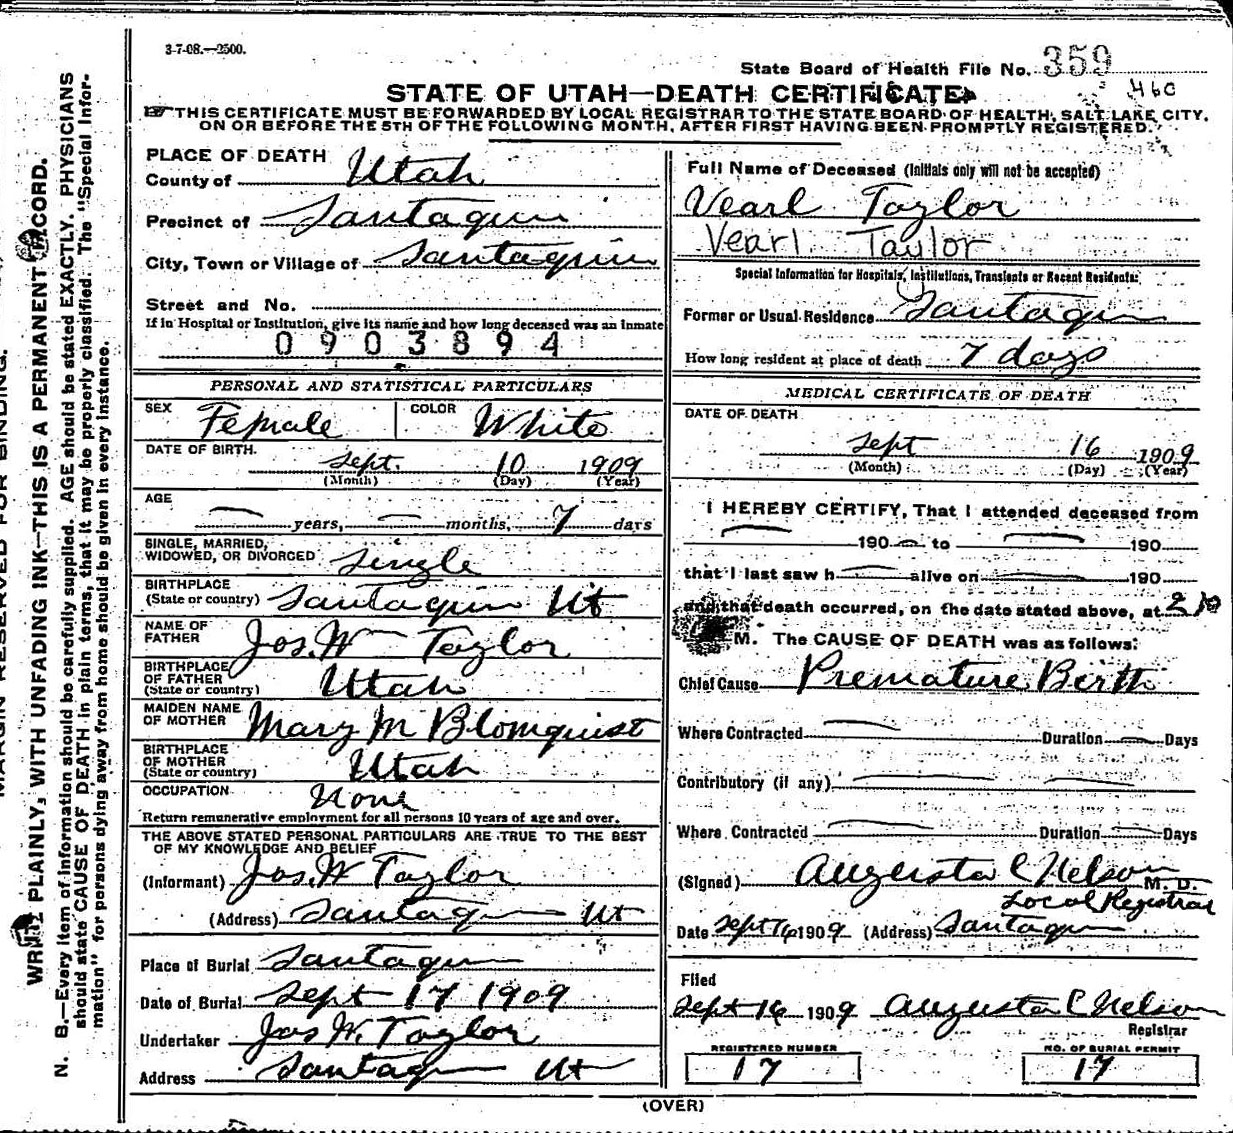 3-7-08.—2500.
State Board of Health File No. 359
460
STATE OF UTAH—DEATH CERTIFICATE
THIS CERTIFICATE MUST BE FORWARDED BY LOCAL REGISTRAR TO THE STATE BOARD OF HEALTH, SALT LAKE CITY,
ON OR BEFORE THE 5TH OF THE FOLLOWING MONTH, AFTER FIRST HAVING BEEN PROMPTLY REGISTERED.
PLACE OF DEATH
County of Utah
Precinct of Santaquin
City, Town or Village of Santaquin
Street and No.
If in Hospital or Institution, give its name and how long deceased was an inmate
0903894
PERSONAL AND STATISTICAL PARTICULARS
SEX Female COLOR White
DATE OF BIRTH. Sept. 10 1909
(Month) (Day) (Year)
AGE
— years, — months, 7 days
SINGLE, MARRIED,
WIDOWED, OR DIVORCED Single
BIRTHPLACE
(State or country) Santaquin Ut
NAME OF
FATHER Jos. Wm Taylor
BIRTHPLACE
OF FATHER
(State or country) Utah
MAIDEN NAME
OF MOTHER Mary M Blomquist
BIRTHPLACE
OF MOTHER
(State or country) Utah
OCCUPATION None
Return remunerative employment for all persons 10 years of age and over.
THE ABOVE STATED PERSONAL PARTICULARS ARE TRUE TO THE BEST
OF MY KNOWLEDGE AND BELIEF
(Informant) Jos. W Taylor
(Address) Santaquin Ut
Place of Burial Santaquin
Date of Burial Sept 17 1909
Undertaker Jos W. Taylor
Address Santaquin Ut
Full Name of Deceased (Initials only will not be accepted)
Vearl Taylor
Vearl Taylor
Special Information for Hospitals, Institutions, Transients or Recent Residents:
Former or Usual Residence Santaquin
How long resident at place of death 7 days
MEDICAL CERTIFICATE OF DEATH
DATE OF DEATH
Sept 16 1909
(Month) (Day) (Year)
I HEREBY CERTIFY, That I attended deceased from
— 190— to — 190
that I last saw h— alive on — 190
and that death occurred, on the date stated above, at 2
M. The CAUSE OF DEATH was as follows:
Chief Cause Premature Birth
Where Contracted — Duration — Days
Contributory (if any) —
Where Contracted — Duration — Days
(Signed) Augusta C Nelson M. D.
Local Registrar
Date Sept 16 1909 (Address) Santaquin
Filed
Sept 16 1909 Augusta C Nelson
Registrar
REGISTERED NUMBER NO. OF BURIAL PERMIT
17 17
(OVER)
MARGIN RESERVED FOR BINDING.
WRITE PLAINLY, WITH UNFADING INK—THIS IS A PERMANENT RECORD.
N. B.—Every item of information should be carefully supplied. AGE should be stated EXACTLY. PHYSICIANS
should state CAUSE OF DEATH in plain terms, that it may be properly classified. The "Special Infor-
mation" for persons dying away from home should be given in every instance.